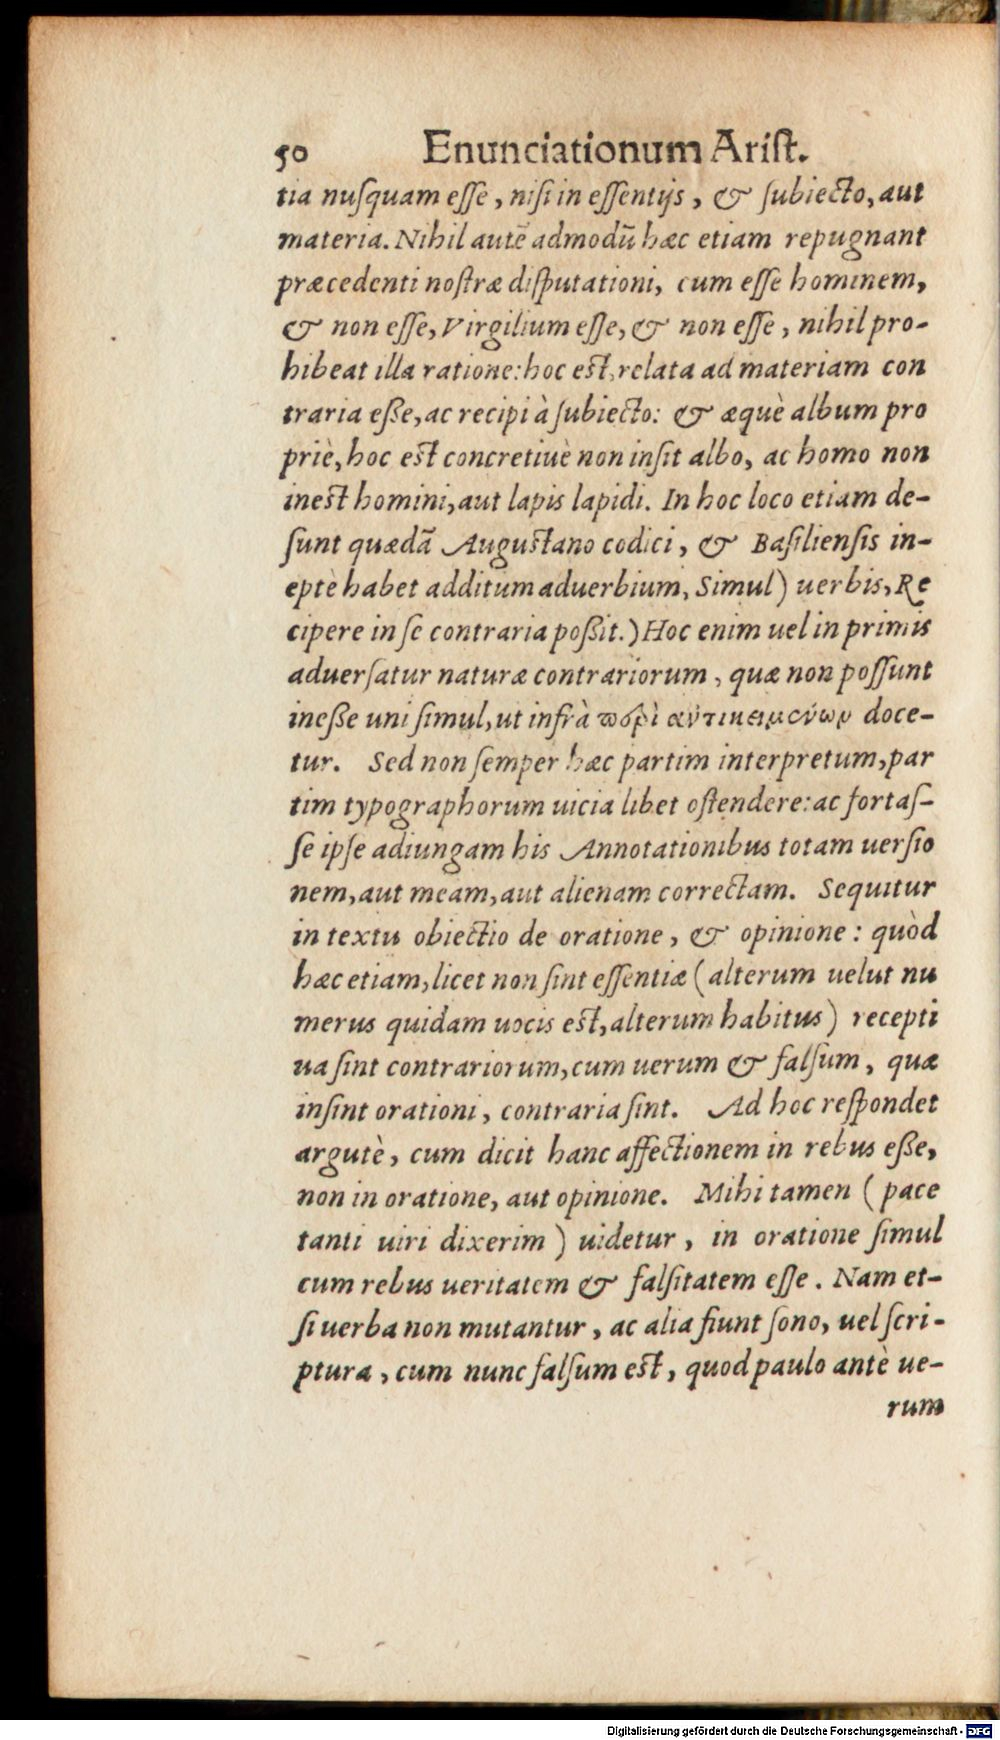 50 Enunciationum Arist.
tia nusquam esse, nisi in essentijs, & subiecto, aut
materia. Nihil autẽ admodũ hæc etiam repugnant
præcedenti nostræ disputationi, cum esse hominem,
& non esse, Virgilium esse, & non esse, nihil pro-
hibeat illa ratione: hoc est, relata ad materiam con
traria eße, ac recipi à subiecto: & æquè album pro
priè, hoc est concretiuè non insit albo, ac homo non
inest homini, aut lapis lapidi. In hoc loco etiam de-
sunt quædã Augustano codici, & Basiliensis in-
eptè habet additum aduerbium, Simul) uerbis, Re
cipere in se contraria poßit.) Hoc enim uel in primis
aduersatur naturæ contrariorum, quæ non possunt
ineße uni simul, ut infrà περὶ ἀντικειμένων doce-
tur. Sed non semper hæc partim interpretum, par
tim typographorum uicia libet ostendere: ac fortas-
se ipse adiungam his Annotationibus totam uersio
nem, aut meam, aut alienam correctam. Sequitur
in textu obiectio de oratione, & opinione: quòd
hæc etiam, licet non sint essentiæ (alterum uelut nu
merus quidam uocis est, alterum habitus) recepti
ua sint contrariorum, cum uerum & falsum, quæ
insint orationi, contraria sint. Ad hoc respondet
argutè, cum dicit hanc affectionem in rebus eße,
non in oratione, aut opinione. Mihi tamen (pace
tanti uiri dixerim) uidetur, in oratione simul
cum rebus ueritatem & falsitatem esse. Nam et-
si uerba non mutantur, ac alia fiunt sono, uel scri-
ptura, cum nunc falsum est, quod paulo antè ue-
rum
Digitalisierung gefördert durch die Deutsche Forschungsgemeinschaft - DFG